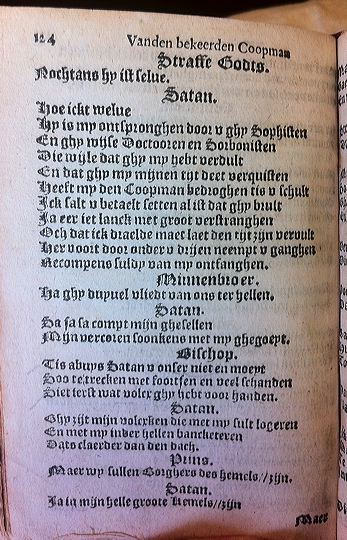 124
Vanden bekeerden Coopman
Straffe Godts.
Nochtans hy ist selue.
Satan.
Hoe ickt welue
Hy is my ontspronghen door v ghy Sophisten
En ghy wijse Doctooren en Sorbonisten
Die wijle dat ghy my hebt verdult
En dat ghy my mijnen tijt deet verquisten
Heeft my den Coopman bedroghen tis v schult
Ick salt v betaelt setten al ist dat ghy brult
Ja eer iet lanck met groot verstranghen
Och dat ick draelde maer laet den tijt zijn vervult
Her voort door onder v drijen neempt v ganghen
Recompens suldy van my ontfanghen.
Minnenbroer.
Ha ghy duyuel vliedt van ons ter hellen.
Satan.
Sa sa sa compt mijn ghesellen
Mijn vercoren soonkens met my ghegoept.
Bischop.
Tis abuys Satan v onser niet en moept
Soo te trecken met foortsen en veel schanden
Siet ierst wat volcx ghy hebt voor handen.
Satan.
Ghy zijt mijn volcxken die met my sult logeren
En met my inder hellen bancketeren
Dats claerder dan den dach.
Prins.
Maer wy sullen Borghers des hemels // zijn.
Satan.
Ja in mijn helle groote Kemels // zijn
Maer